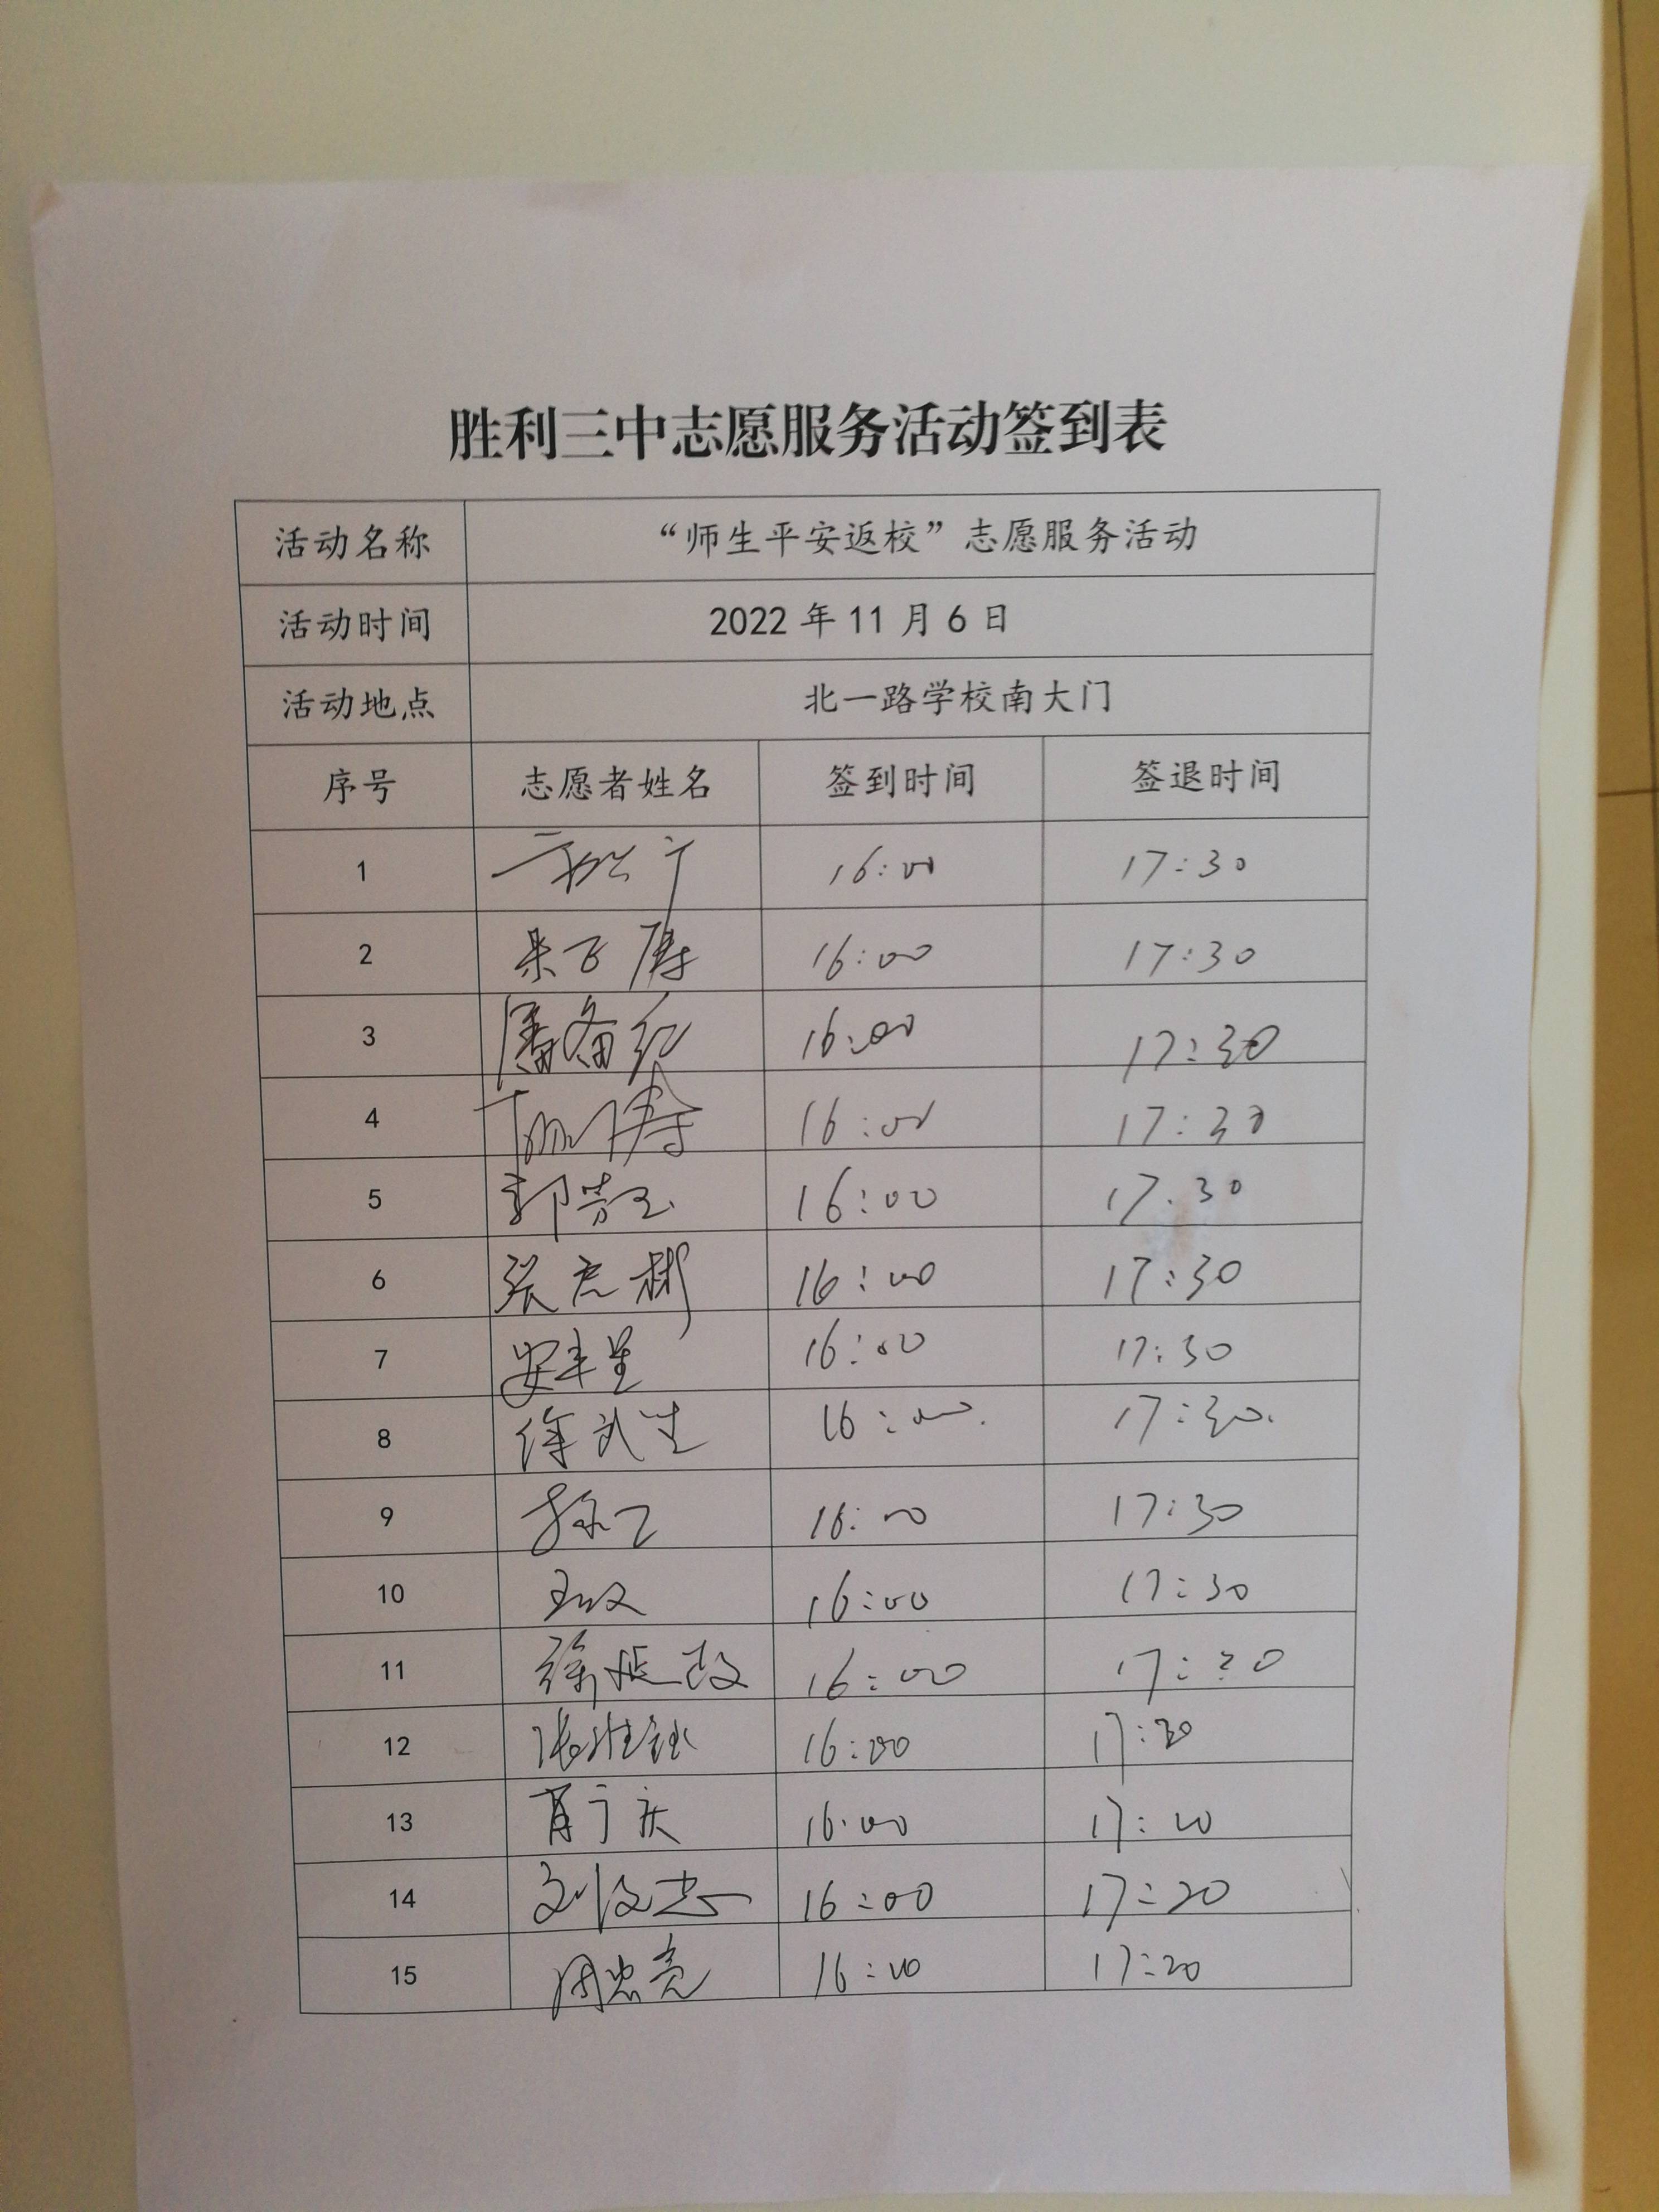 胜利三中志愿服务活动签到表
活动名称 “师生平安返校”志愿服务活动
活动时间 2022 年 11 月 6 日
活动地点 北一路学校南大门
序号 志愿者姓名 签到时间 签退时间
1 16:00 17:30
2 16:00 17:30
3 潘备红 16:00 17:30
4 16:00 17:30
5 郭芳玉 16:00 17.30
6 张志彬 16:00 17:30
7 安丰星 16:00 17:30
8 徐武生 16:00. 17:30.
9 16:00 17:30
10 16:00 17:30
11 徐延改 16:00 17:30
12 16:00 17:30
13 16:00 17:20
14 刘俊杰 16:00 17:20
15 周忠亮 16:00 17:20